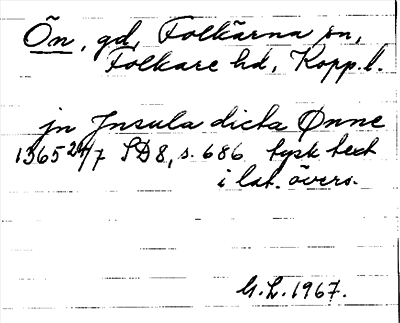 Ön, gd, Folkärna sn,
Folkare hd, Kopp. l.
jn Jnsula dicta Ønne
1365 24/7 SD 8, s. 686 tysk text
i lat. övers.
G.L. 1967.